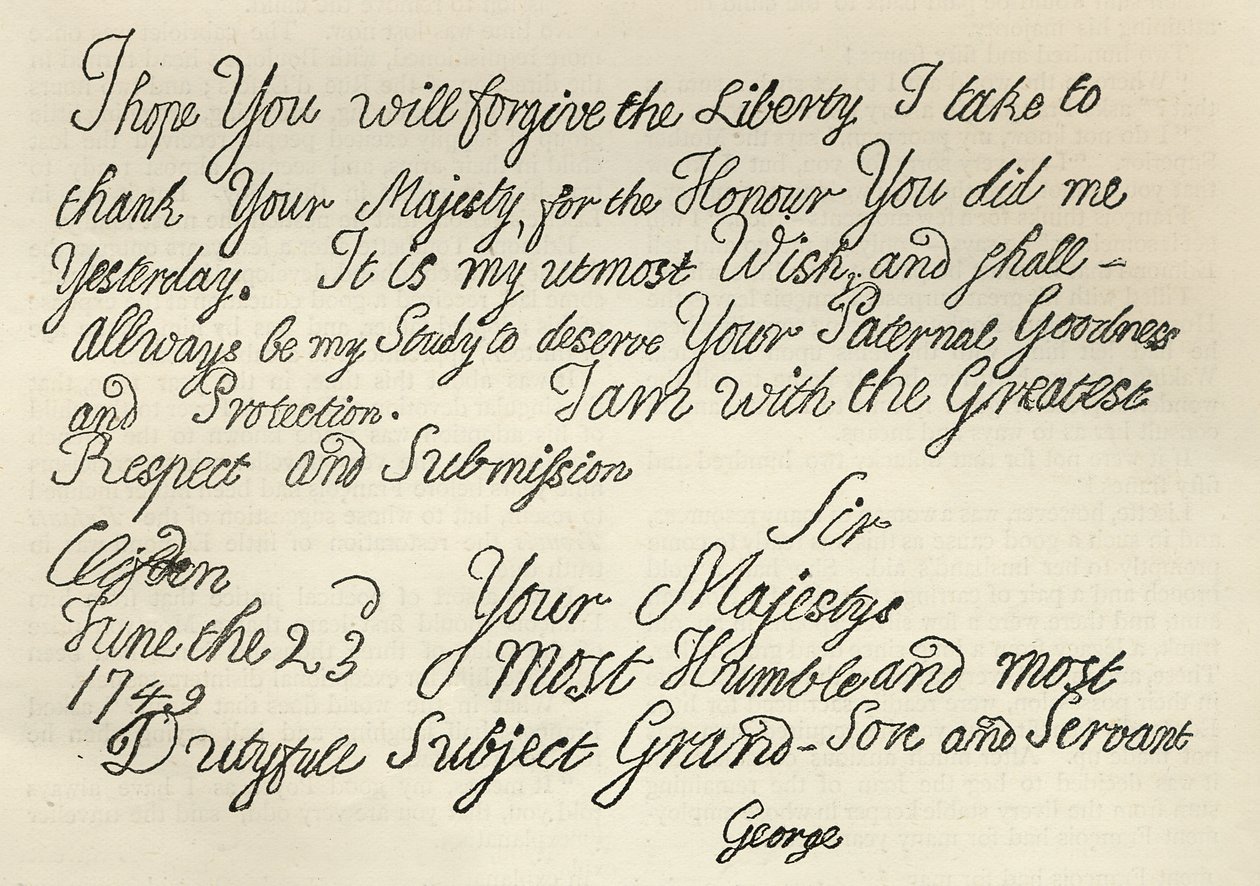 I hope You will forgive the Liberty I take to
thank Your Majesty, for the Honour You did me
Yesterday. It is my utmost Wish, and shall -
allways be my Study to deserve Your Paternal Goodness
and Protection. I am with the Greatest
Respect and Submission
Sir
Clifden
Your Majestys
June the 23d
Most Humble and most
1749
Dutyfull Subject Grand-Son and Servant
George